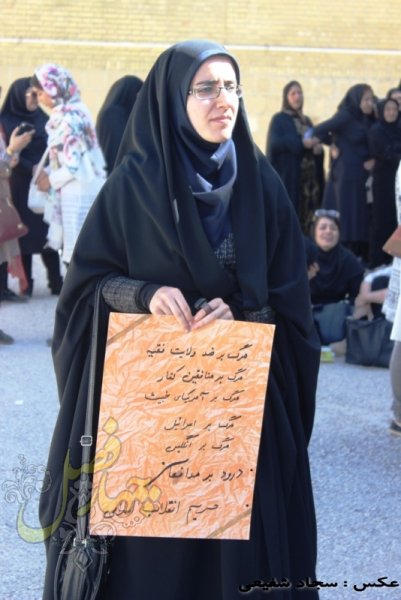 مرگ بر ضد ولایت فقیه
مرگ بر منافقین کفار
مرگ بر آمریکای خبیث
مرگ بر اسرائیل
مرگ بر انگلیس
درود بر مدافعان
حریم انقلاب
چهار فصل
عکس : سجاد شفیعی